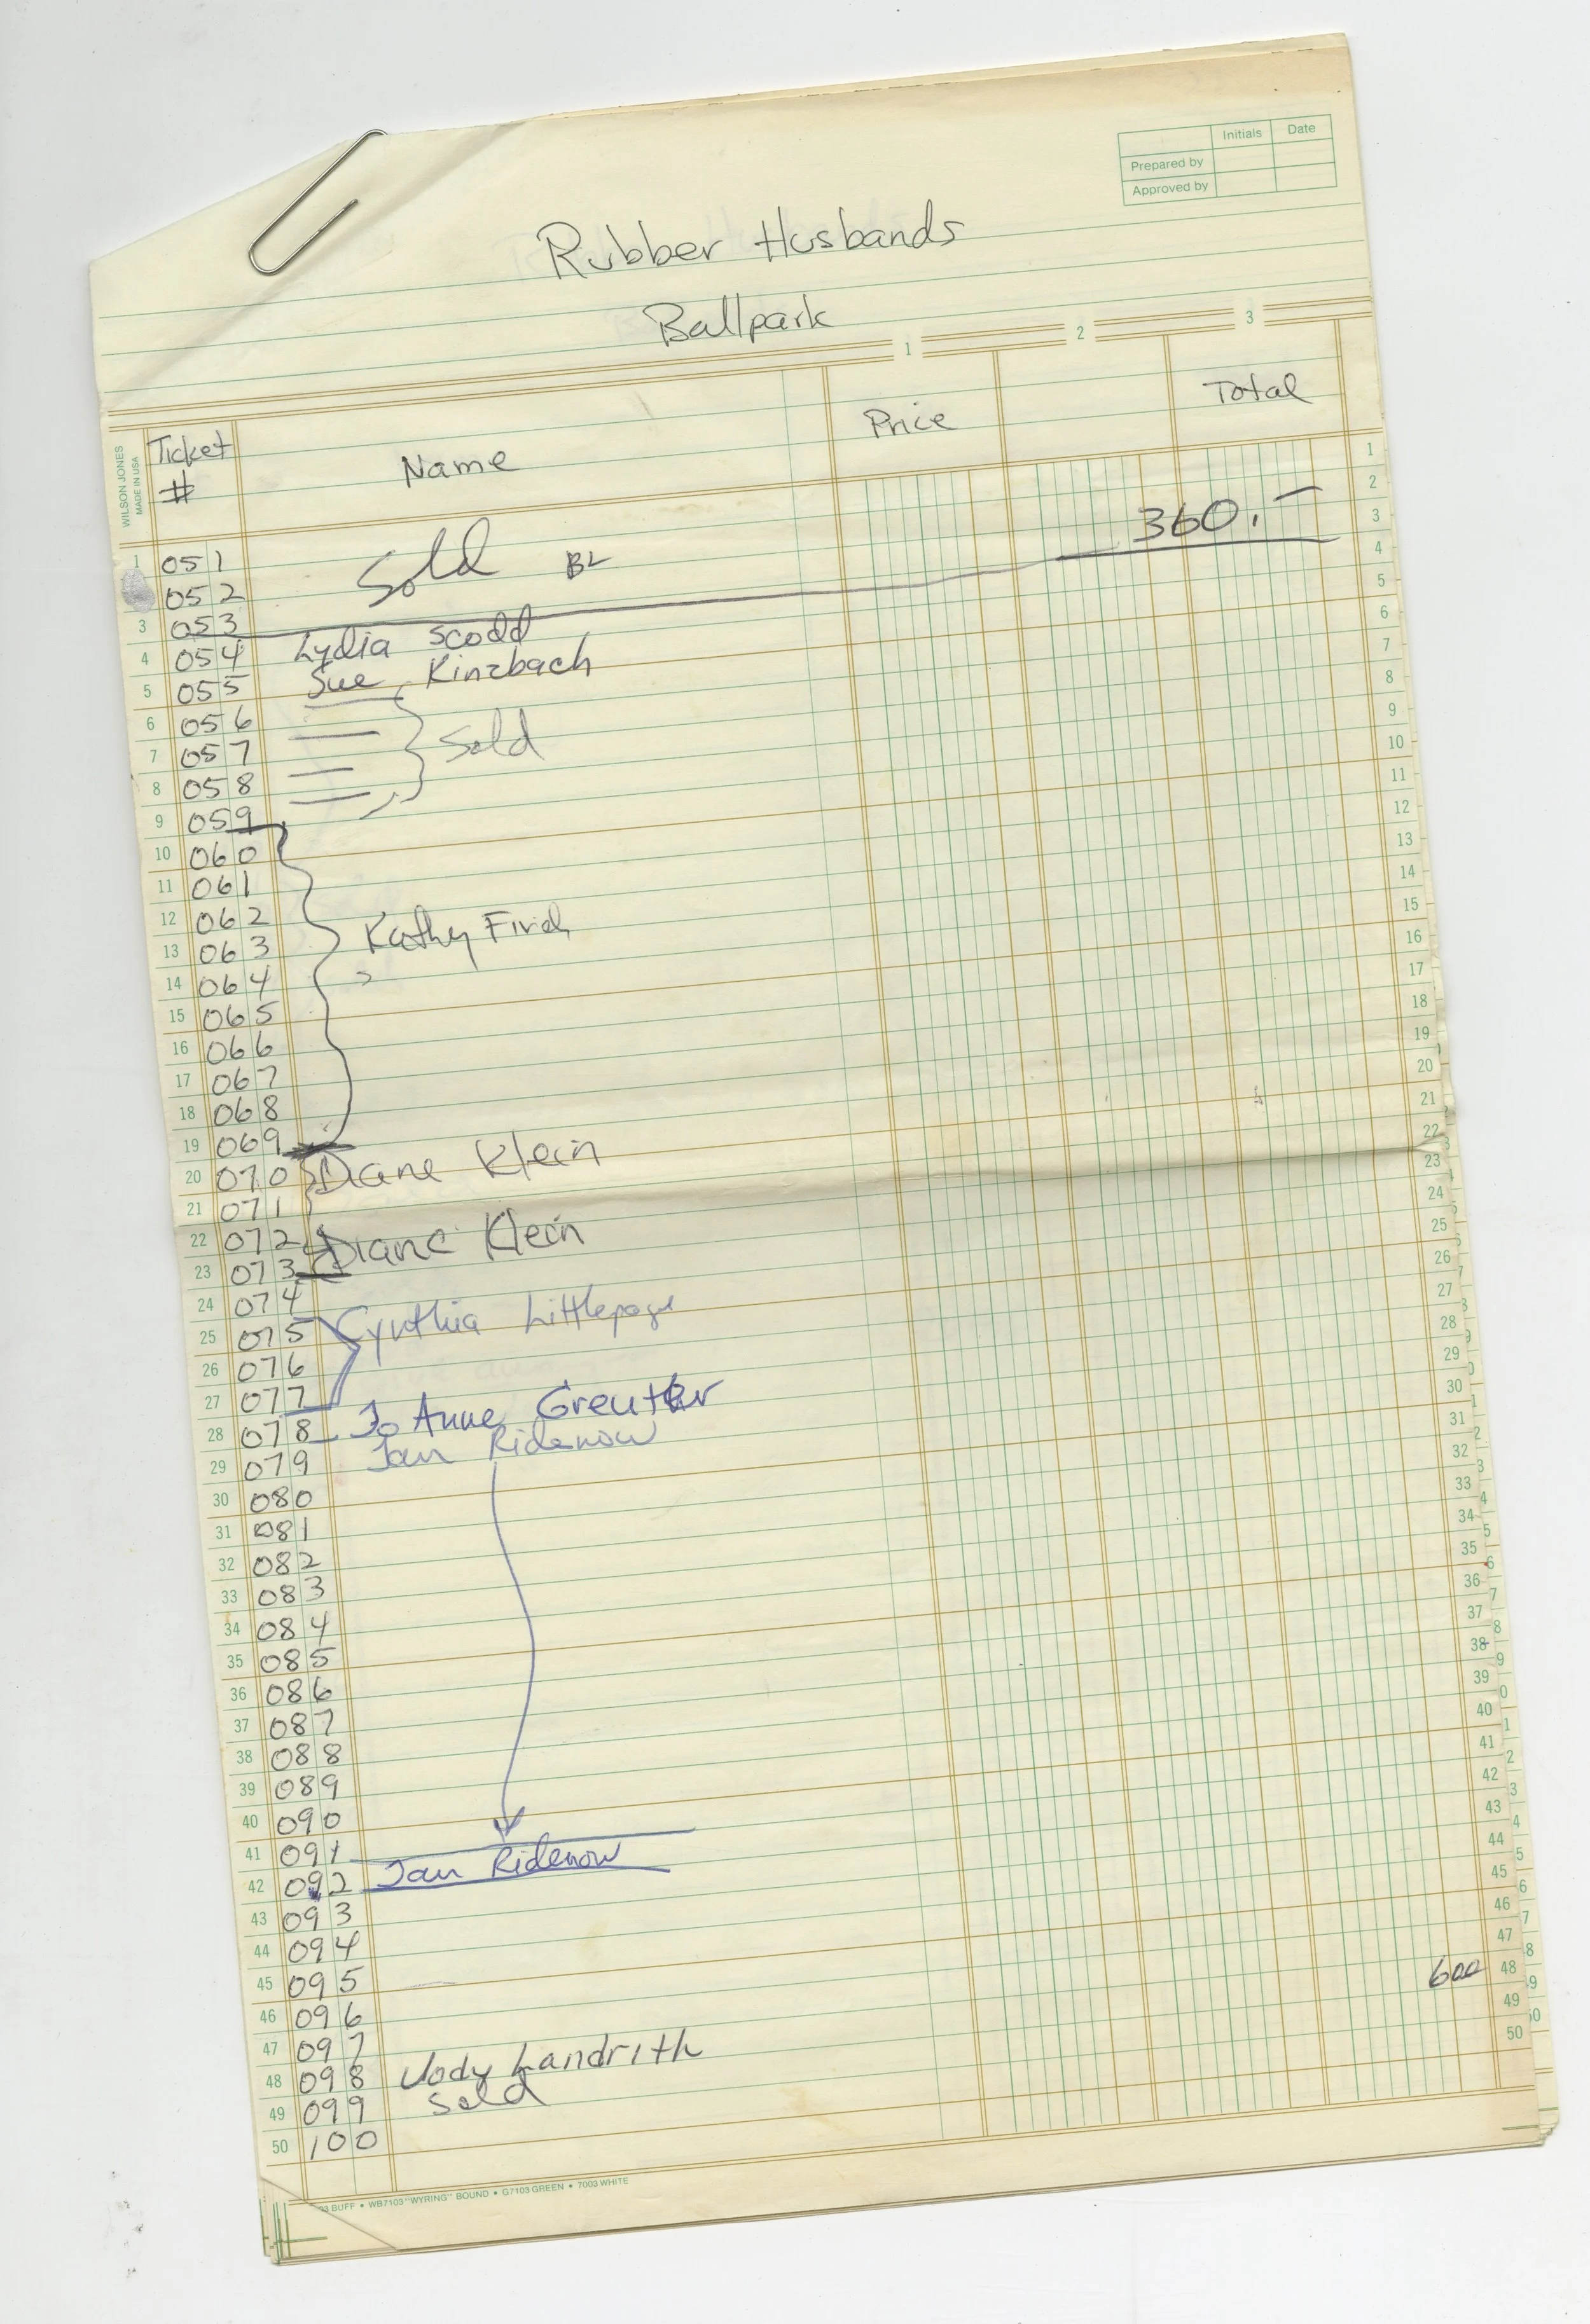 Initials Date
Prepared by
Approved by
Rubber Husbands
Ballpark
1 2 3
WILSON JONES
MADE IN USA
Ticket # Name Price Total
1 051 Sold BL 360.—
052
3 053
4 054 Lydia Scodd
5 055 Sue Kinzbach
6 056
7 057 Sold
8 058
9 059
10 060
11 061
12 062
13 063 Kathy Finch
14 064
15 065
16 066
17 067
18 068
19 069
20 070 Diane Klein
21 071
22 072 Diane Klein
23 073
24 074
25 075 Cynthia Littlepage
26 076
27 077
28 078 Jo Anne Greutker
29 079 Jan Ridenow
30 080
31 081
32 082
33 083
34 084
35 085
36 086
37 087
38 088
39 089
40 090
41 091
42 092 Jan Ridenow
43 093
44 094
45 095
46 096
47 097
48 098 Jody Landrith
49 099 Sold
50 100
1
2
3
4
5
6
7
8
9
10
11
12
13
14
15
16
17
18
19
20
21
22
23
24
25
26
27
28
29
30
31
32
33
34
35
36
37
38
39
40
41
42
43
44
45
46
47
600 48
49
50
BUFF • WB7103 "WYRING" BOUND • G7103 GREEN • 7003 WHITE